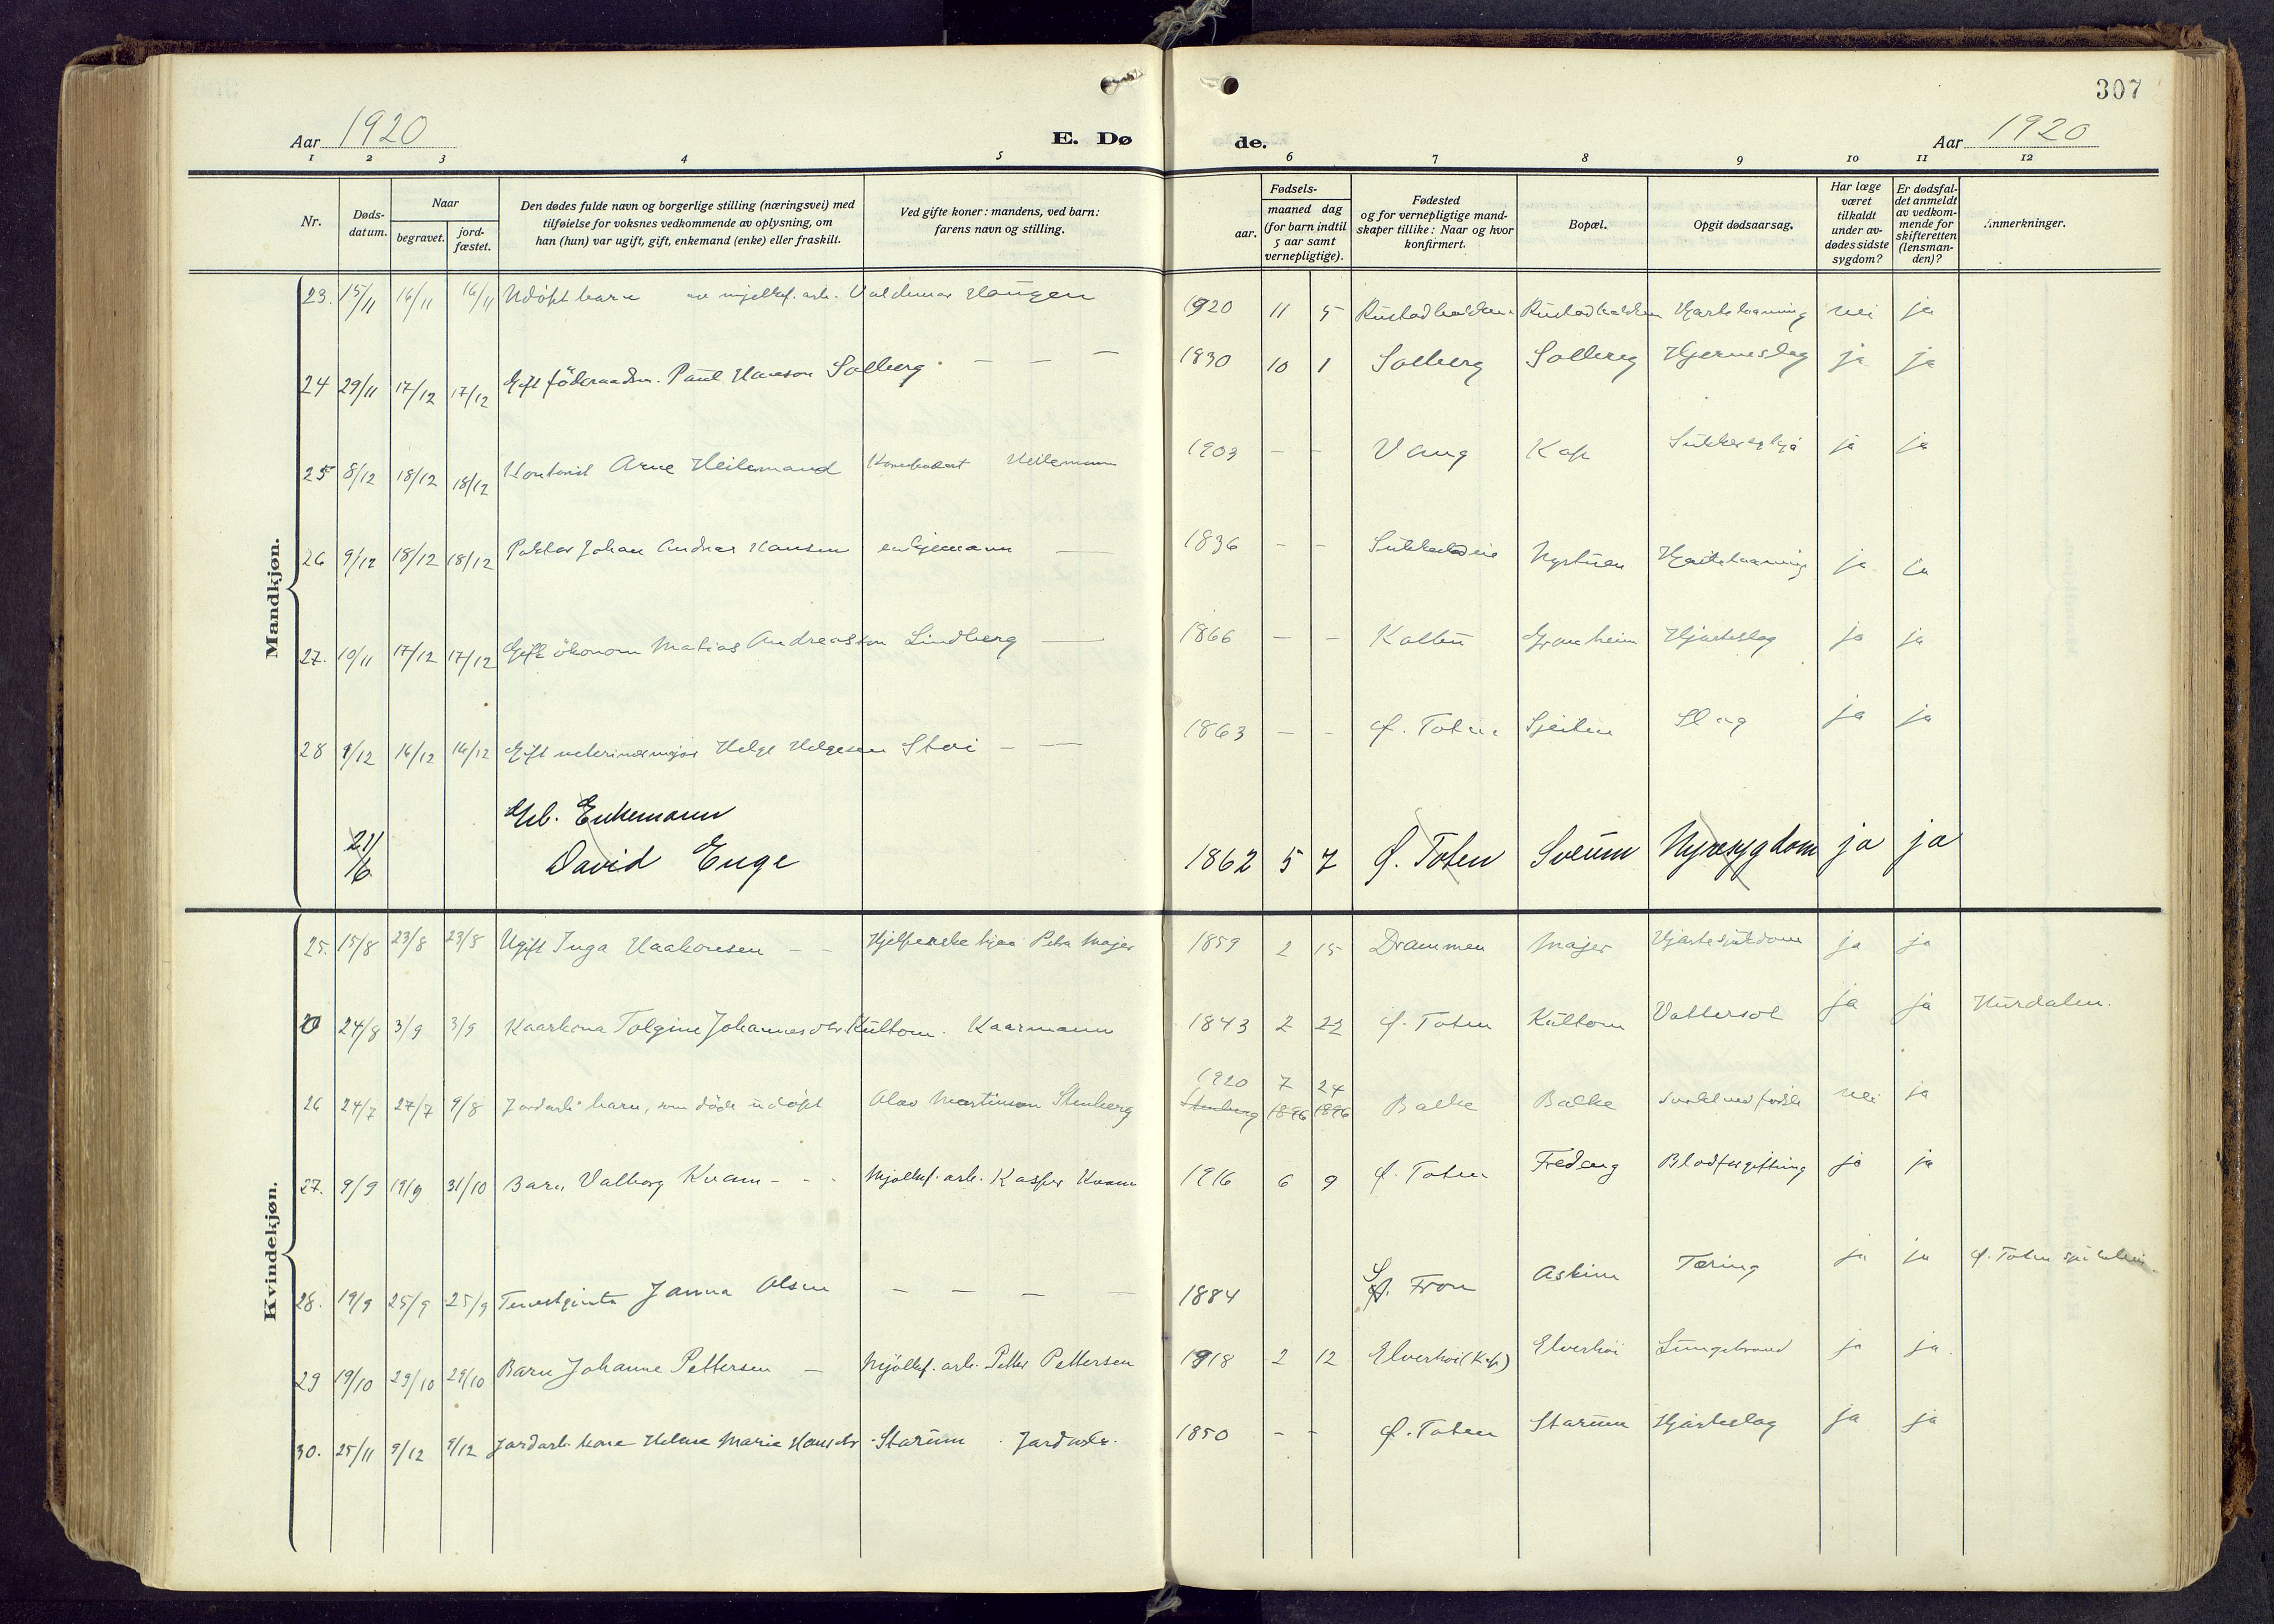 307
Aar 1920
E. Dø
de.
Aar 1920
1 2 3 4 5 6 7 8 9 10 11 12
Nr.
Døds-
datum.
Naar
begravet.
jord-
fæstet.
Den dødes fulde navn og borgerlige stilling (næringsvei) med
tilføielse for voksnes vedkommende av oplysning, om
han (hun) var ugift, gift, enkemand (enke) eller fraskilt.
Ved gifte koner: mandens, ved barn:
farens navn og stilling.
Fødsels-
aar.
maaned dag
(for barn indtil
5 aar samt
vernepligtige).
Fødested
og for vernepligtige mand-
skaper tillike: Naar og hvor
konfirmert.
Bopæl.
Opgit dødsaarsag.
Har læge
været
tilkaldt
under av-
dødes sidste
sygdom?
Er dødsfal-
det anmeldt
av vedkom-
mende for
skifteretten
(lensman-
den)?
Anmerkninger.
Mandkjøn.
23. 15/11 16/11 16/11 Udöpt barn av mjølkef. arb. Valdemar Haugen 1920 11 5 Rustadbakken Rustadbakken nei ja
24 29/11 17/12 17/12 Gift föderaadm. Paul Hanson Solberg - - - 1830 10 1 Solberg Solberg Hjerneslag ja ja
25 8/12 18/12 18/12 Kontorist Arne Heilemand 1903 - - Vang Kap ja ja
26 9/12 18/12 18/12 Johan Andreas Hansen enkjemann - 1836 - - Nystuen ja ja
27. 10/11 17/12 17/12 Gift ökonom Matias Andreasson Lindberg - 1866 - - Kolbu Granheim Hjarteslag ja ja
28 9/12 16/12 16/12 Gift veterinærmajor Helge Helgesen Stoi - - 1863 - - Ø. Toten Slag ja ja
Enkemann
21/6 David Enge 1862 5 7 Ø. Toten Sveum Nyresygdom ja ja
Kvindekjøn.
25. 15/8 23/8 23/8 Ugift Inga Haakonsen - - Petra Majer 1859 2 15 Drammen Majer Hjartesjukdom ja ja
24/8 3/9 3/9 Kaarkona Tolgine Johannesdtr. Kultom. Kaarmann 1843 2 22 Ø. Toten Kultom Vattersot ja ja Hurdalen.
26 24/7 27/7 9/8 Jordarb. barn, som döde udöpt Olav Martinson Stenberg Stenberg 1920 7 24 1896 1896 Balke Balke nei ja
27. 9/9 19/9 31/10 Barn Valborg Kvam - - - Mjølkef. arb. Kasper Kvam 1916 6 9 Ø. Toten Fredeng Blodforgiftning ja ja
28. 19/9 25/9 25/9 Janna Olsen - - - - 1884 S. Fron Askim Tæring ja ja Ø. Toten
29 19/10 29/10 29/10 Barn Johanne Pettersen - Mjølkef. arb. Petter Pettersen 1918 2 12 Elverhöi (Kap) Elverhöi Lungebrand ja ja.
30. 25/11 9/12 9/12 Jordarb. kone Helene Marie Hansdtr. Starum. Jordarb. 1850 - - Ø. Toten Starum Hjarteslag ja ja